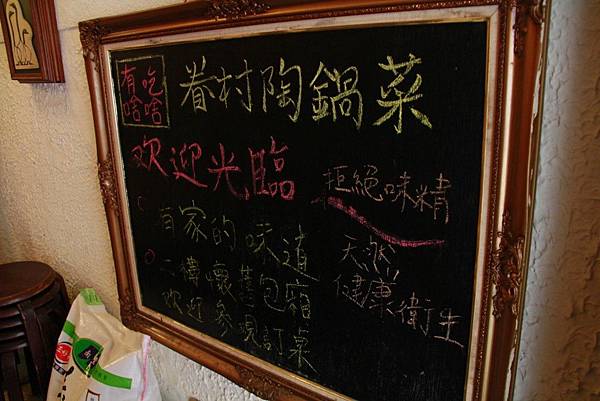 有吃
啥啥
眷村陶鍋菜
欢迎光臨
拒絕味精
天然
健康衛生
有家的味道
二樓懷舊包廂
欢迎參見訂桌